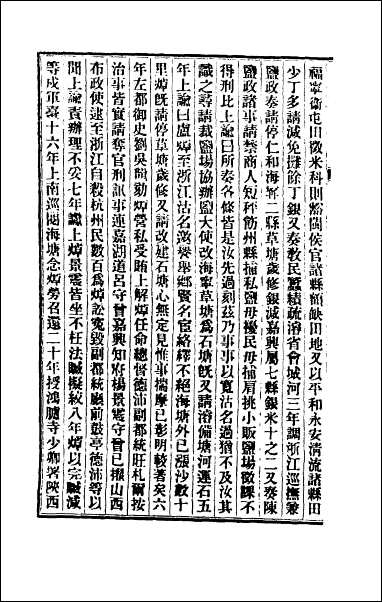 福寧衞屯田徵米科則豁閩侯官諸縣額缺田地又以平和永安清流諸縣田
少丁多請減免攤除丁銀又奏教民蠶績疏濬省會城河三年調浙江巡撫兼
鹽政奏請停仁和海寧二縣草塘歲修銀減嘉興屬七縣銀米十之二又奏陳
鹽政諸事請禁商人短秤飭州縣捕私鹽毋擾民毋捕肩挑小販鹽場徵課不
得刑比上諭曰所奏各條皆是汝先過刻茲乃事事以寬沽名過猶不及汝其
識之尋請裁鹽場協辦鹽大使改海寧草塘爲石塘旣又請濬備塘河運石五
年上諭曰盧焯至浙江沽名邀譽舉鄉賢名宦絡繹不絕海塘外已漲沙數十
里焯旣請停草塘歲修又請改建石塘心無定見惟事揣摩已彰明較著矣六
年左都御史劉吳龍劾焯營私受賄上解焯任命總督德沛副都統旺札爾按
治事皆實請奪官刑訊事連嘉湖道呂守曾嘉興知府楊景震守曾已擢山西
布政使逮至浙江自殺杭州民數百爲焯訟寃毀副都統廳前鼓亭德沛等以
聞上諭責辦理不妥七年讞上焯景震皆坐不枉法贓擬絞八年焯以完贓減
等戍軍臺十六年上南巡閱海塘念焯勞召還二十年授鴻臚寺少卿署陝西